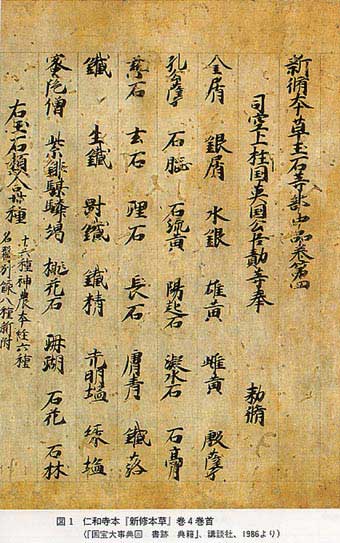 新脩本草玉石等部中品卷第四
司空上柱国英国公臣勣等奉 勅脩
金屑 銀屑 水銀 雄黄 雌黄 殷孽
孔公孽 石脳 石流黄 陽起石 凝水石 石膏
慈石 玄石 理石 長石 膚青 鐵落
鐵 生鐵 鐵 鐵精 光明塩 緑塩
蜜陀僧 紫鉚騏驎竭 桃花石 珊瑚 石花 石林
右玉石類合卅種
十六種神農本経六種
名醫別録八種新附
図1 仁和寺本『新修本草』巻4巻首
(『国宝大事典 書跡 典籍』、講談社、1986より)